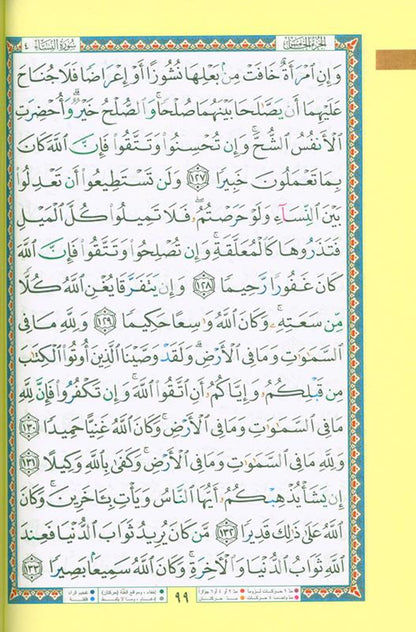 الجزء الخامس
سُورَةُ النِّسَاء ٤
وَإِنِ ٱمْرَأَةٌ خَافَتْ مِنۢ بَعْلِهَا نُشُوزًا أَوْ إِعْرَاضًا فَلَا جُنَاحَ
عَلَيْهِمَا أَن يَصَّٰلَحَا بَيْنَهُمَا صُلْحًا ۚ وَٱلصُّلْحُ خَيْرٌ ۗ وَأُحْضِرَتِ
ٱلْأَنفُسُ ٱلشُّحَّ ۚ وَإِن تُحْسِنُوا۟ وَتَتَّقُوا۟ فَإِنَّ ٱللَّهَ كَانَ
بِمَا تَعْمَلُونَ خَبِيرًا ١٢٧ وَلَن تَسْتَطِيعُوٓا۟ أَن تَعْدِلُوا۟
بَيْنَ ٱلنِّسَآءِ وَلَوْ حَرَصْتُمْ ۖ فَلَا تَمِيلُوا۟ كُلَّ ٱلْمَيْلِ
فَتَذَرُوهَا كَٱلْمُعَلَّقَةِ ۚ وَإِن تُصْلِحُوا۟ وَتَتَّقُوا۟ فَإِنَّ ٱللَّهَ
كَانَ غَفُورًا رَّحِيمًا ١٢٨ وَإِن يَتَفَرَّقَا يُغْنِ ٱللَّهُ كُلًّا
مِّن سَعَتِهِۦ ۚ وَكَانَ ٱللَّهُ وَٰسِعًا حَكِيمًا ١٢٩ وَلِلَّهِ مَا فِى
ٱلسَّمَٰوَٰتِ وَمَا فِى ٱلْأَرْضِ ۗ وَلَقَدْ وَصَّيْنَا ٱلَّذِينَ أُوتُوا۟ ٱلْكِتَٰبَ
مِن قَبْلِكُمْ وَإِيَّاكُمْ أَنِ ٱتَّقُوا۟ ٱللَّهَ ۚ وَإِن تَكْفُرُوا۟ فَإِنَّ لِلَّهِ
مَا فِى ٱلسَّمَٰوَٰتِ وَمَا فِى ٱلْأَرْضِ ۚ وَكَانَ ٱللَّهُ غَنِيًّا حَمِيدًا ١٣٠
وَلِلَّهِ مَا فِى ٱلسَّمَٰوَٰتِ وَمَا فِى ٱلْأَرْضِ ۚ وَكَفَىٰ بِٱللَّهِ وَكِيلًا ١٣١
إِن يَشَأْ يُذْهِبْكُمْ أَيُّهَا ٱلنَّاسُ وَيَأْتِ بِـَٔاخَرِينَ ۚ وَكَانَ
ٱللَّهُ عَلَىٰ ذَٰلِكَ قَدِيرًا ١٣٢ مَّن كَانَ يُرِيدُ ثَوَابَ ٱلدُّنْيَا فَعِندَ
ٱللَّهِ ثَوَابُ ٱلدُّنْيَا وَٱلْءَاخِرَةِ ۚ وَكَانَ ٱللَّهُ سَمِيعًۢا بَصِيرًا ١٣٣
٩٩